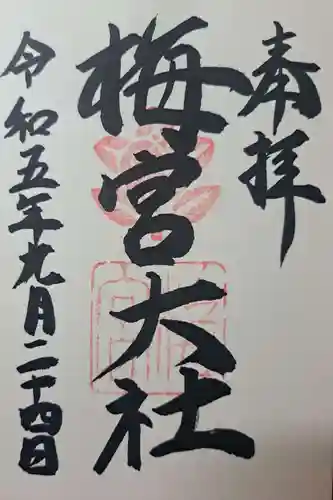 奉拝
梅宮大社
令和五年九月二十四日